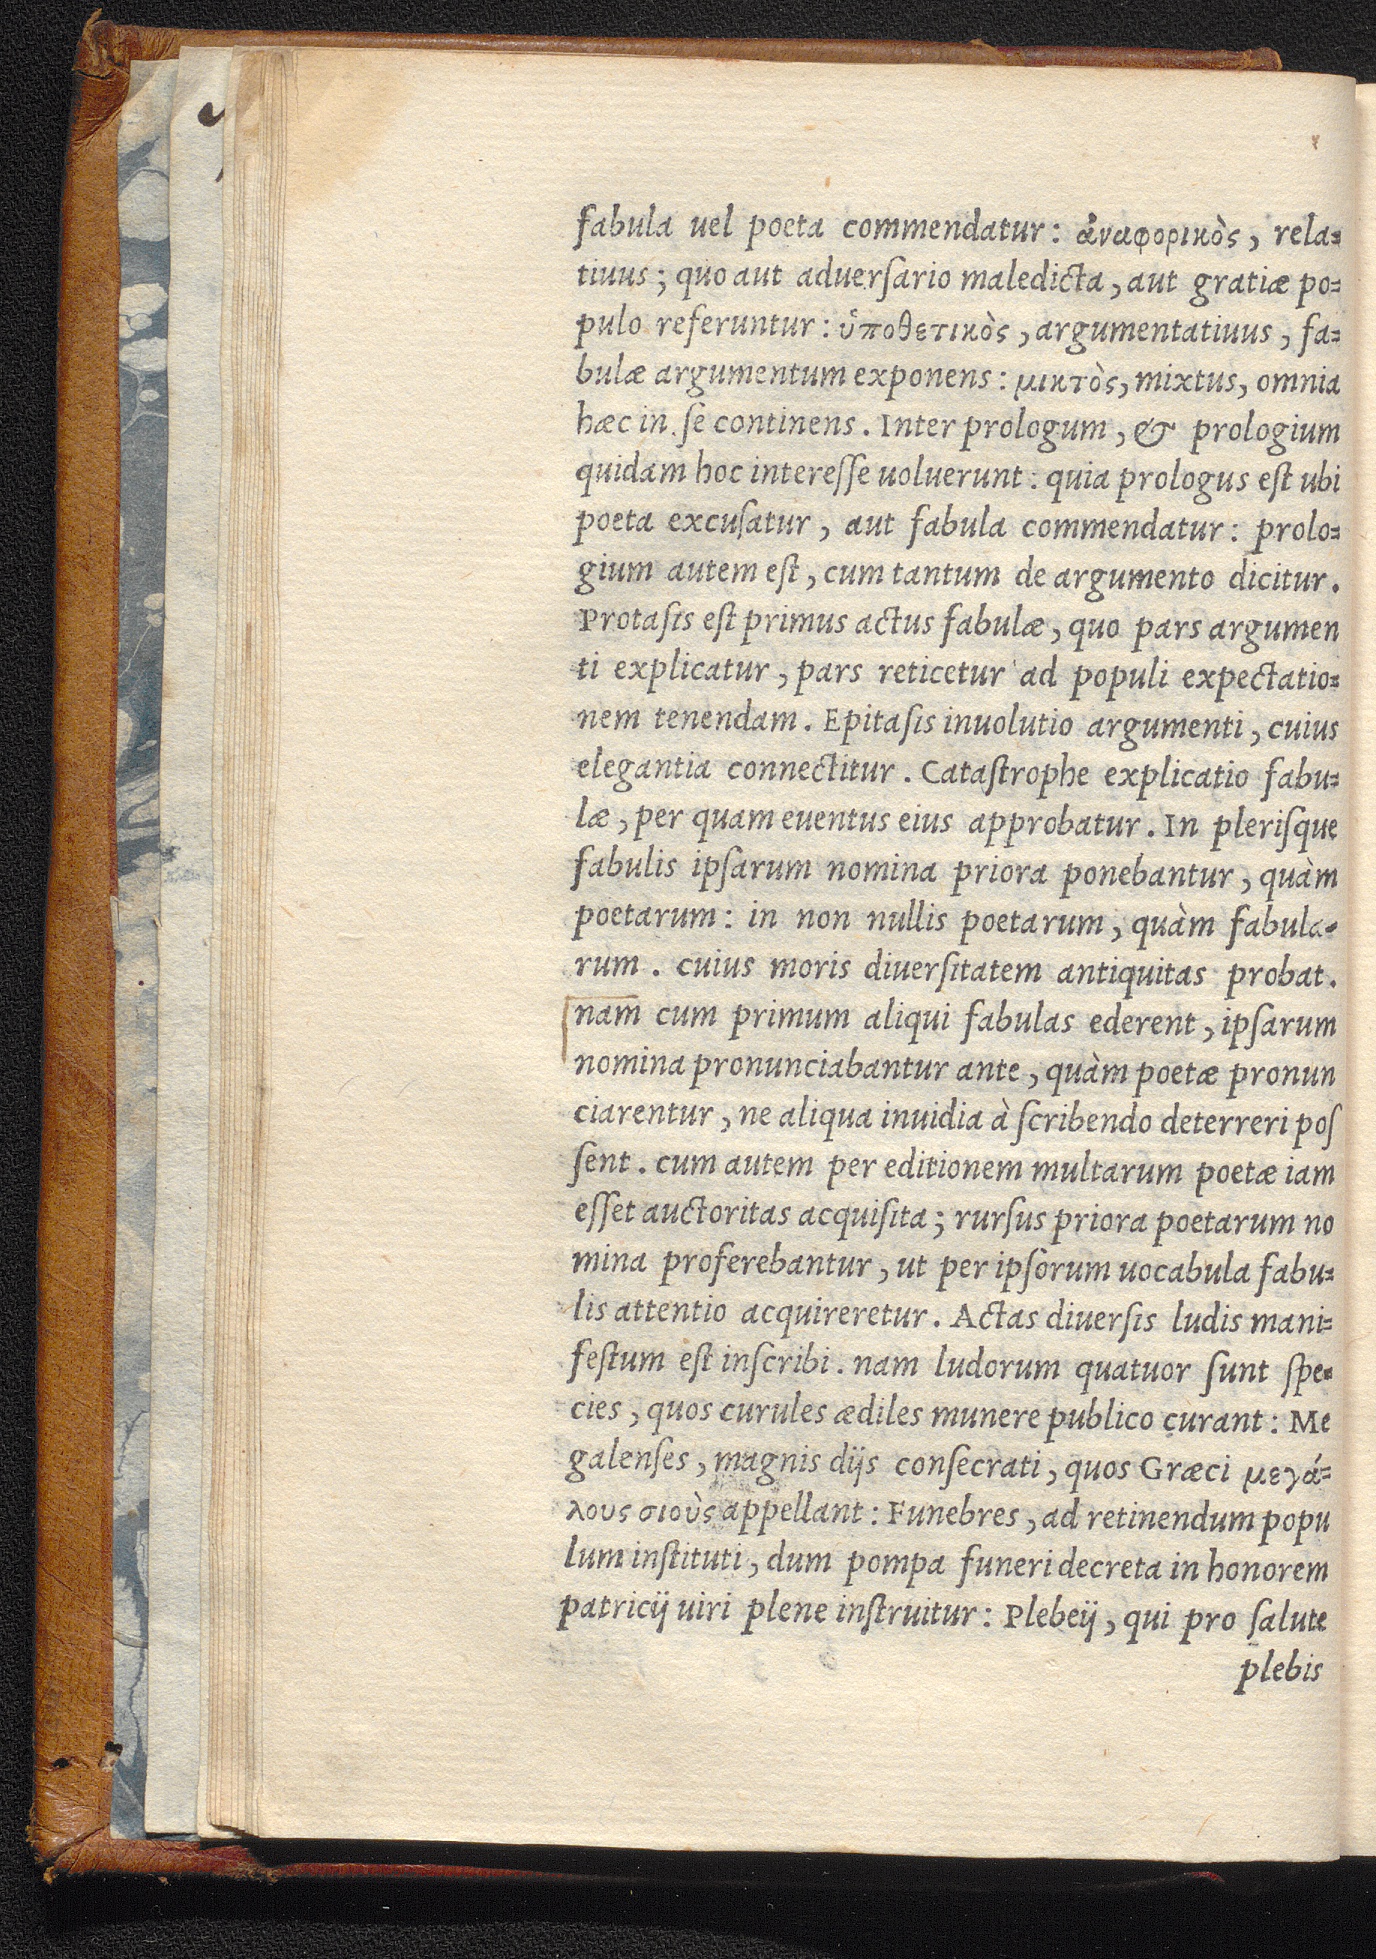 fabula uel poeta commendatur: ἀναφορικὸς, rela=
tiuus; quo aut aduersario maledicta, aut gratiæ po=
pulo referuntur: ὑποθετικὸς, argumentatiuus, fa=
bulæ argumentum exponens: μικτὸς, mixtus, omnia
hæc in se continens. Inter prologum, & prologium
quidam hoc interesse uoluerunt: quia prologus est ubi
poeta excusatur, aut fabula commendatur: prolo=
gium autem est, cum tantum de argumento dicitur.
Protasis est primus actus fabulæ, quo pars argumen
ti explicatur, pars reticetur ad populi expectatio=
nem tenendam. Epitasis inuolutio argumenti, cuius
elegantia connectitur. Catastrophe explicatio fabu=
læ, per quam euentus eius approbatur. In plerisque
fabulis ipsarum nomina priora ponebantur, quàm
poetarum: in non nullis poetarum, quàm fabula=
rum. cuius moris diuersitatem antiquitas probat.
nam cum primum aliqui fabulas ederent, ipsarum
nomina pronunciabantur ante, quàm poetæ pronun
ciarentur, ne aliqua inuidia à scribendo deterreri pos
sent. cum autem per editionem multarum poetæ iam
esset auctoritas acquisita; rursus priora poetarum no
mina proferebantur, ut per ipsorum uocabula fabu=
lis attentio acquireretur. Actas diuersis ludis mani=
festum est inscribi. nam ludorum quatuor sunt spe=
cies, quos curules ædiles munere publico curant: Me
galenses, magnis dijs consecrati, quos Græci μεγά=
λους σιοὺς appellant: Funebres, ad retinendum popu
lum instituti, dum pompa funeri decreta in honorem
patricij uiri plene instruitur: Plebeij, qui pro salute
plebis